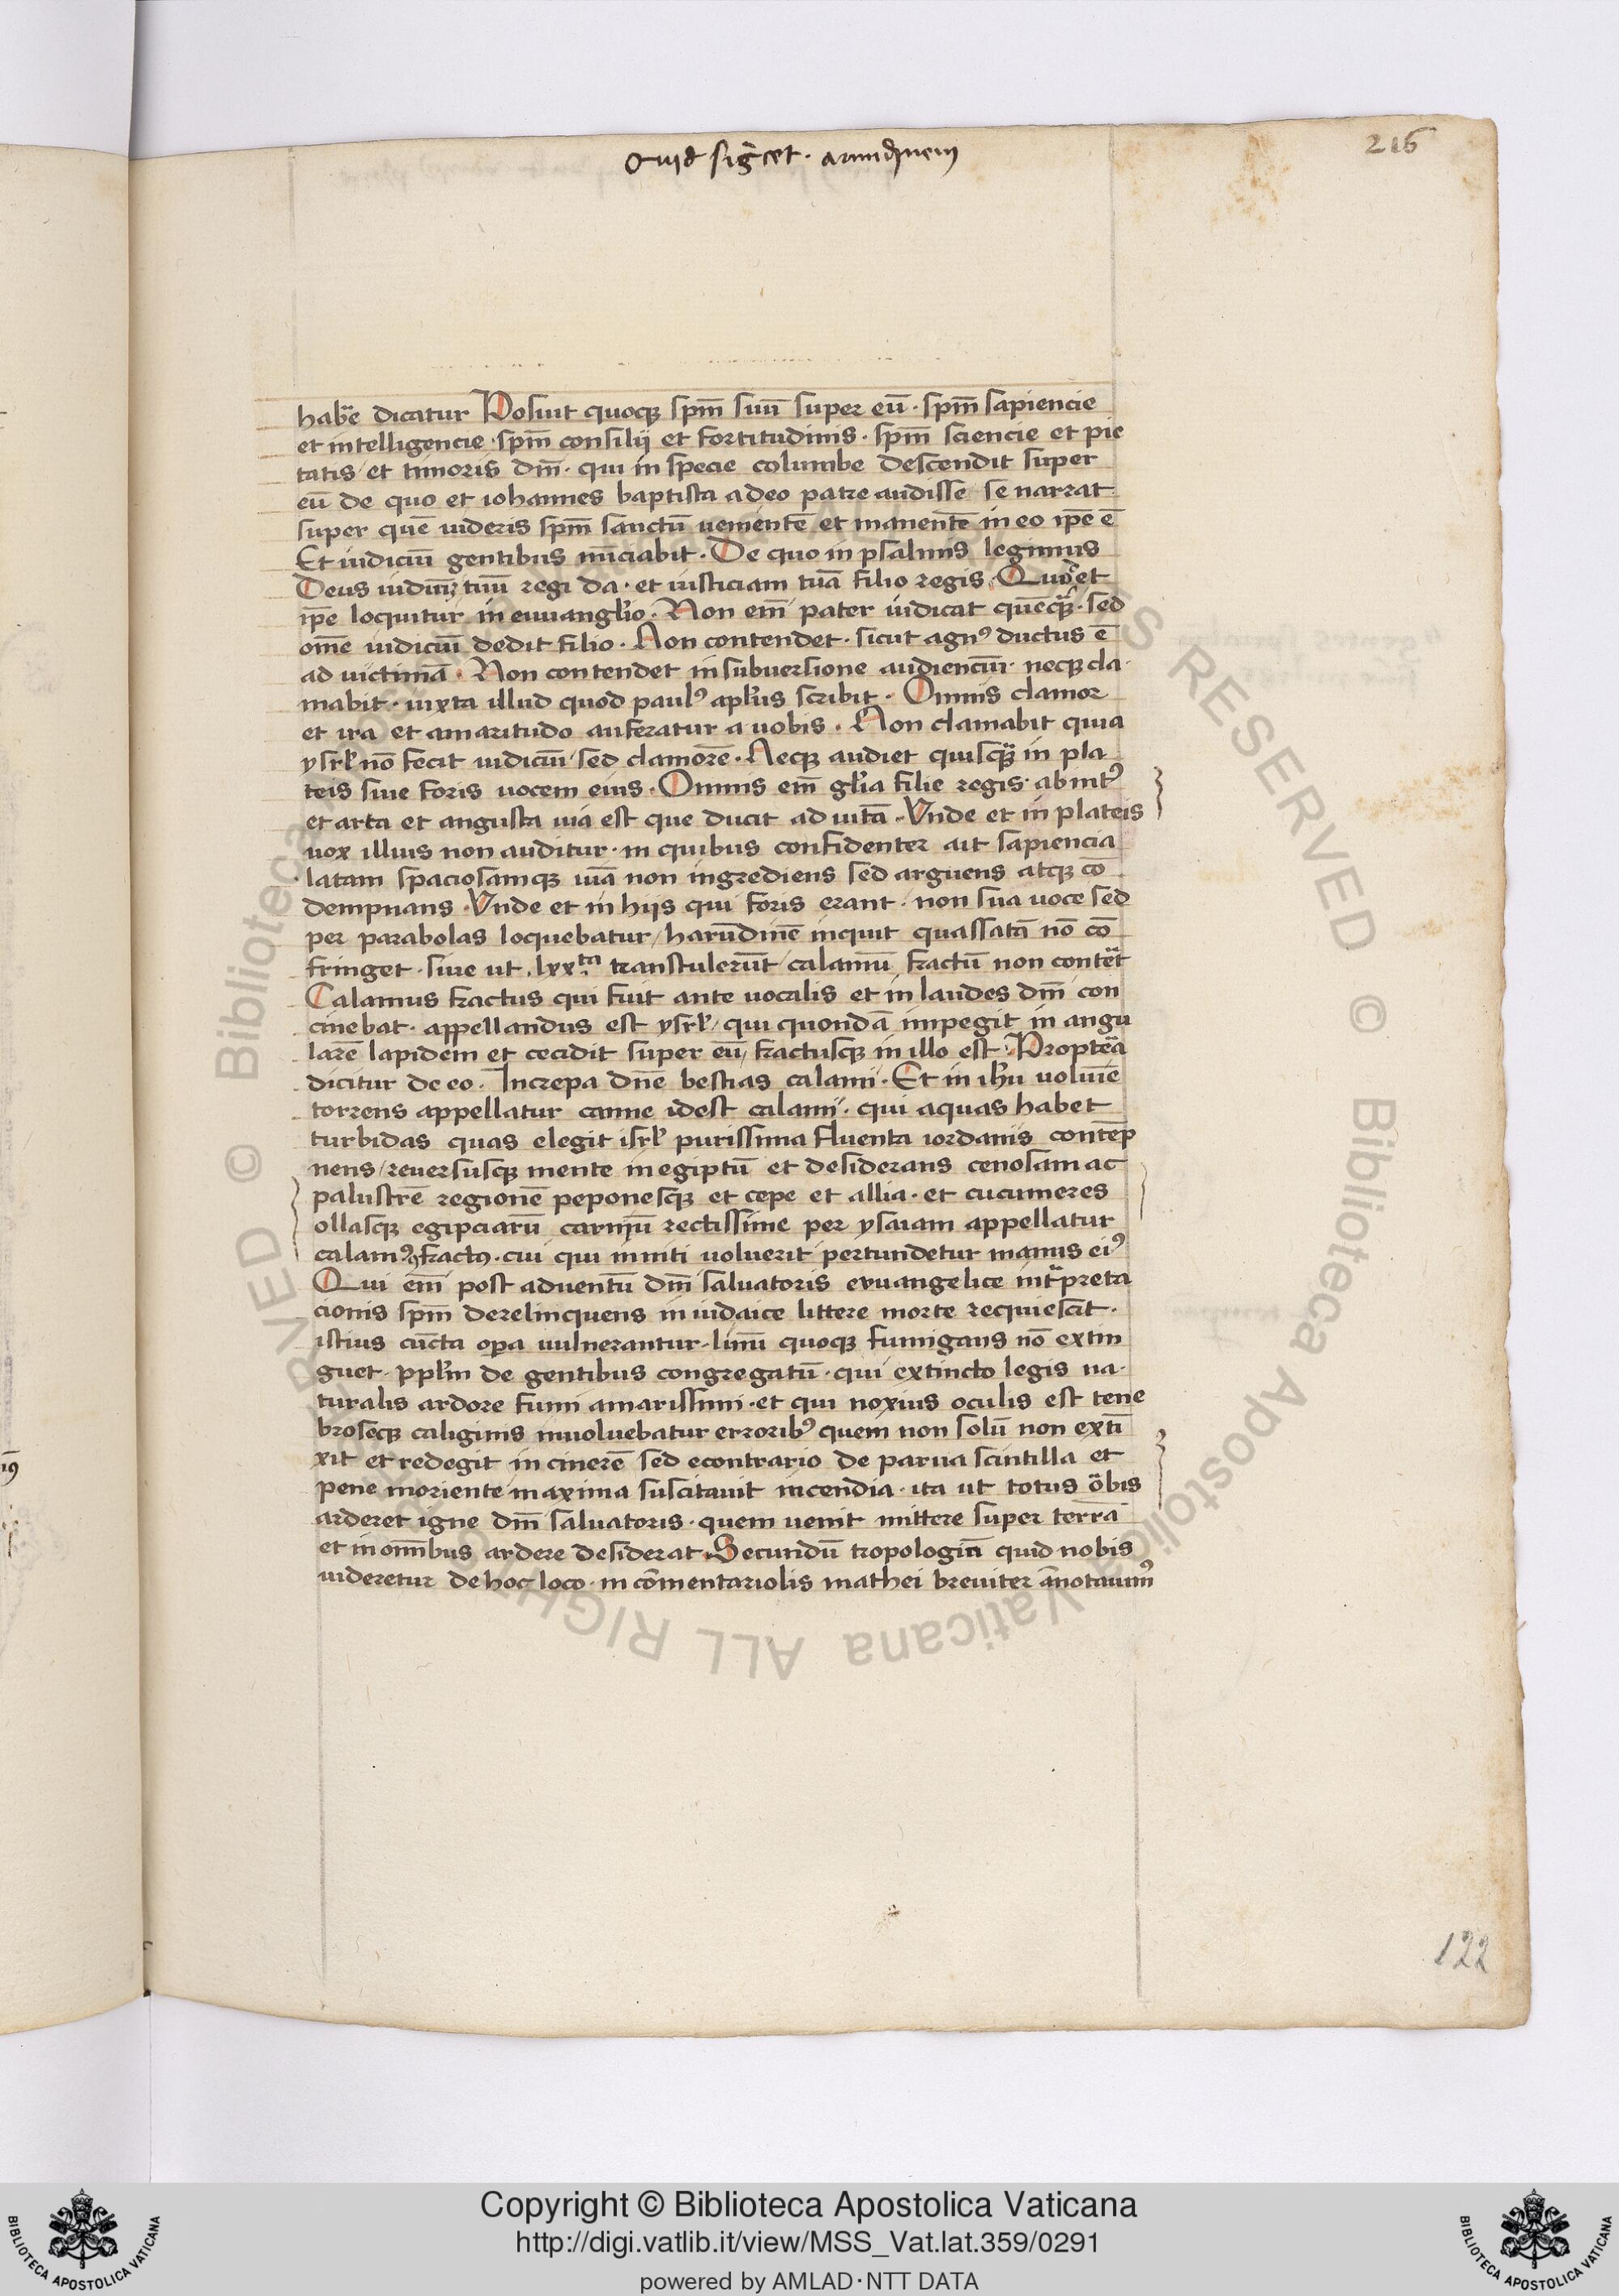 Quid sig̅cet · arundinem
216
hab̅e dicatur Posuit quoqꝫ sp̅m suu̅ super eu̅ · sp̅m sapiencie
et intelligencie · sp̅m consilij et fortitudinis · sp̅m sciencie et pie
tatis / et timoris dn̅i · qui in specie columbe descendit super
eu̅ de quo et iohannes baptista a deo patre audisse se narrat
super que̅ uideris sp̅m sanctu̅ ueniente̅ et manente̅ in eo ip̅e e̅
Et iudiciu̅ gentibus nu̅ciabit · De quo in psalmis legimus
Deus iudiciu̅ tuu̅ regi da · et iusticiam tua̅ filio regis · Quod et
ip̅e loquitur in euuangl̅io · Non em̅ pater iudicat que̅qꝫ · sed
om̅e iudiciu̅ dedit filio · Non contendet · sicut agnꝰ ductus e̅
ad uictima̅ · Non contendet in subuersione audienciu̅ · neqꝫ cla
mabit · iuxta illud quod paulꝰ apl̅us scribit · Omnis clamor
et ira et amaritudo auferatur a uobis · Non clamabit quia
ysrl̅ no̅ fecit iudiciu̅ / sed clamore̅ · Neqꝫ audiet quisqꝫ in pla
teis siue foris uocem eius · Omnis em̅ gl̅ia filie regis · ab intꝰ
et arta et angusta uia est que ducit ad uita̅ · Vnde et in plateis
uox illius non auditur · in quibus confidenter ait sapiencia
latam spaciosamqꝫ uia̅ non ingrediens sed arguens atqꝫ co̅
dempnans · Vnde et in hijs qui foris erant · non sua uoce sed
per parabolas loquebatur / haru̅dine̅ inquit quassata̅ no̅ co̅
fringet · siue ut · lxxta transtuleru̅t / calamu̅ fractu̅ non conte̅t
Calamus fractus qui fuit ante uocalis et in laudes dn̅i con
cinebat · appellandus est ysrl̅ / qui quonda̅ impegit in angu
lare̅ lapidem et cecidit super eu̅ / fractusqꝫ in illo est · Propte̅a
dicitur de eo · Increpa dn̅e bestias calami · Et in ih̅u uolu̅ie
torrens appellatur canne idest calami · qui aquas habet
turbidas quas elegit isrl̅ purissima fluenta iordanis conte̅p
nens / reuersusqꝫ mente in egiptu̅ et desiderans cenosam ac
palustre̅ regione̅ peponesqꝫ et cepe et allia · et cucumeres
ollasqꝫ egipciaru̅ carniu̅ rectissime per ysaiam appellatur
calamꝰ fractꝰ · cui qui inniti uoluerit pertundetur manus eiꝰ
Qui em̅ post aduentu̅ dn̅i saluatoris euuangelice int̅preta
cionis sp̅m derelinquens in iudaice littere morte requiescit ·
istius cu̅cta op̅a uulnerantur · linu̅ quoqꝫ fumigans no̅ extin
guet · ppl̅m de gentibus congregatu̅ · qui extincto legis na
turalis ardore fumi amarissimi · et qui noxius oculis est tene
broseqꝫ caliginis inuoluebatur erroribꝰ quem non solu̅ non exti̅
xit et redegit in cinere̅ sed econtrario de parua scintilla et
pene moriente maxima suscitauit incendia · ita ut totus o̅bis
arderet igne dn̅i saluatoris · quem uenit mittere super terra̅
et in om̅ibus ardere desiderat · Secundu̅ tropologia̅ quid nobis
uideretur de hoc loco · in co̅mentariolis mathei breuiter a̅notauimꝰ
122
© Biblioteca Apostolica Vaticana ALL RIGHTS RESERVED
Copyright © Biblioteca Apostolica Vaticana
http://digi.vatlib.it/view/MSS_Vat.lat.359/0291
powered by AMLAD·NTT DATA
BIBLIOTECA APOSTOLICA VATICANA
BIBLIOTECA APOSTOLICA VATICANA